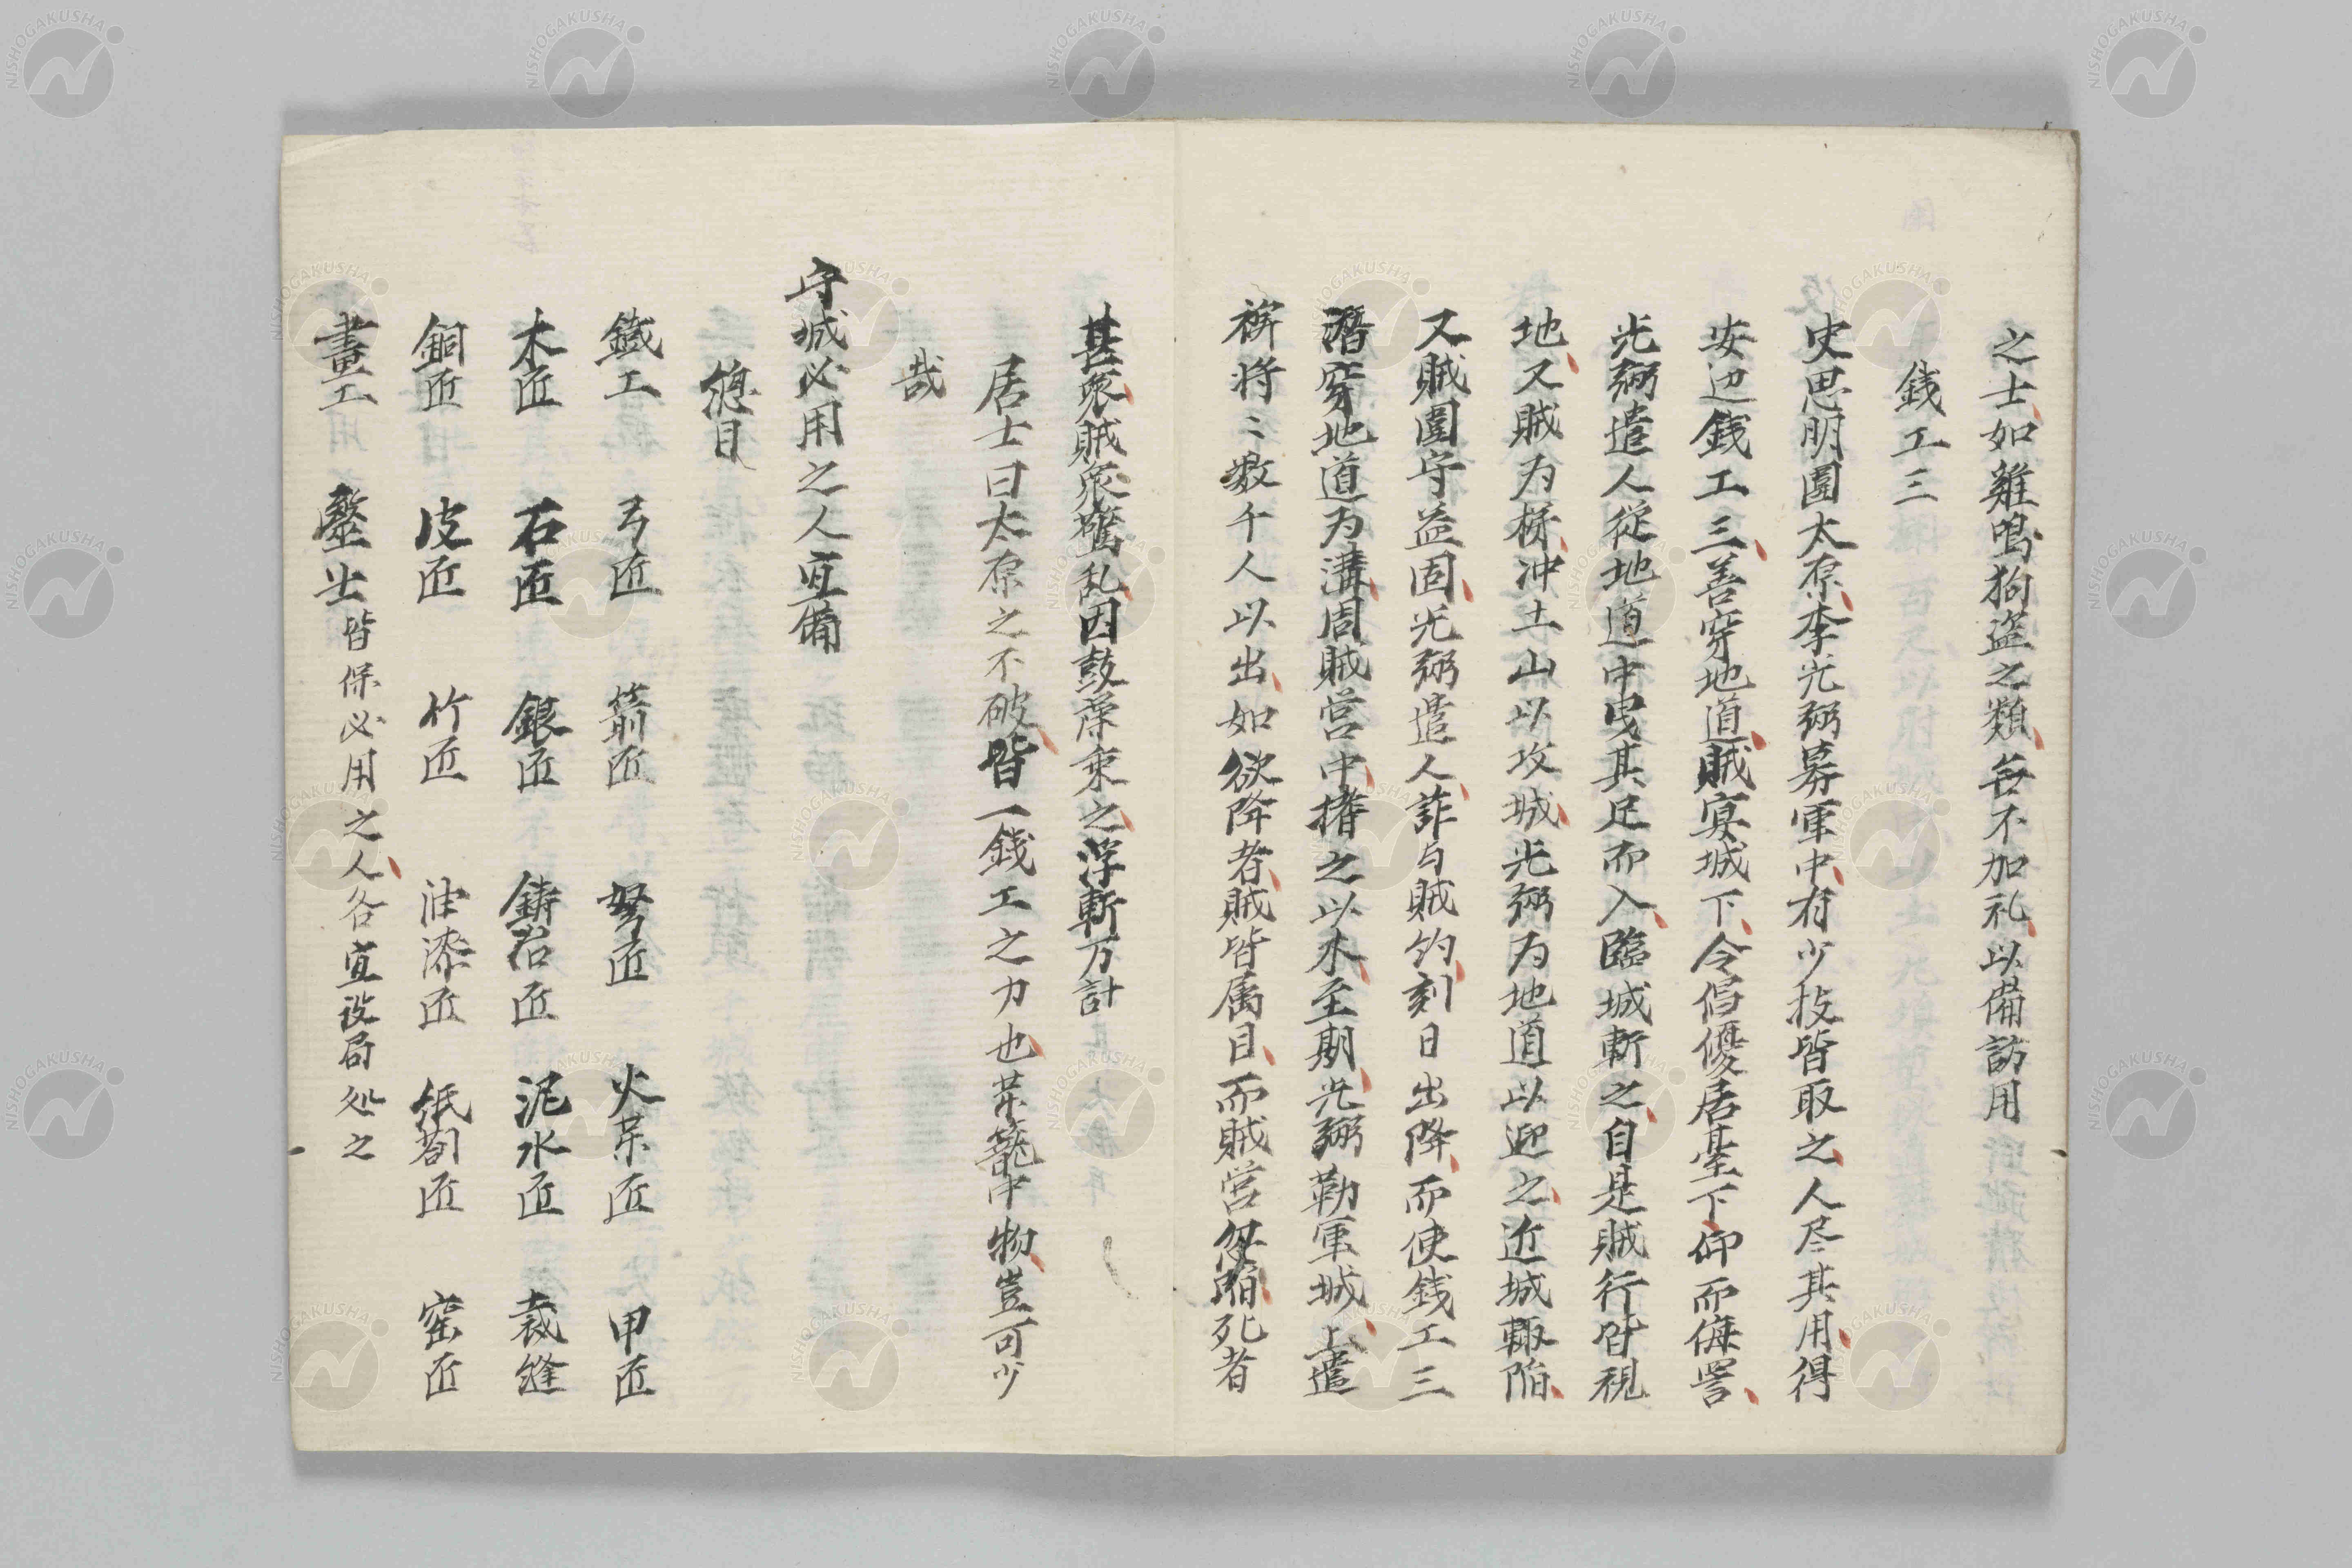 之士如雞鳴狗盗之類無不加礼以備訪用
銭工三
史思明圍太原李光弼募軍中有少技皆取之人尽其用得
安辺銭工三善穿地道賊宴城下令倡優居臺下仰而侮詈
光弼遣人從地道中曳其足而入臨城斬之自是賊行皆視
地又賊为梯冲土山以攻城光弼为地道以迎之近城輙陥
又賊圍守益固光弼遣人詐与賊約刻日出降而使銭工三
潛穿地道为溝周賊営中搘之以木至期光弼勒軍城上遣
裨将〻数千人以出如欲降者賊皆属目而賊営忽陥死者
甚衆賊衆驚乱因鼓譟乗之俘斬万計
居士曰太原之不破皆一銭工之力也茶籠中物豈可少
哉
守城必用之人宜備
總目
鐵工 弓匠 箭匠 弩匠 火茶匠 甲匠
木匠 石匠 銀匠 鋳冶匠 泥水匠 裁縫
銅匠 皮匠 竹匠 油漆匠 紙劄匠 窑匠
畫工 醫士 皆保必用之人各宜設局処之
NISHOGAKUSHA